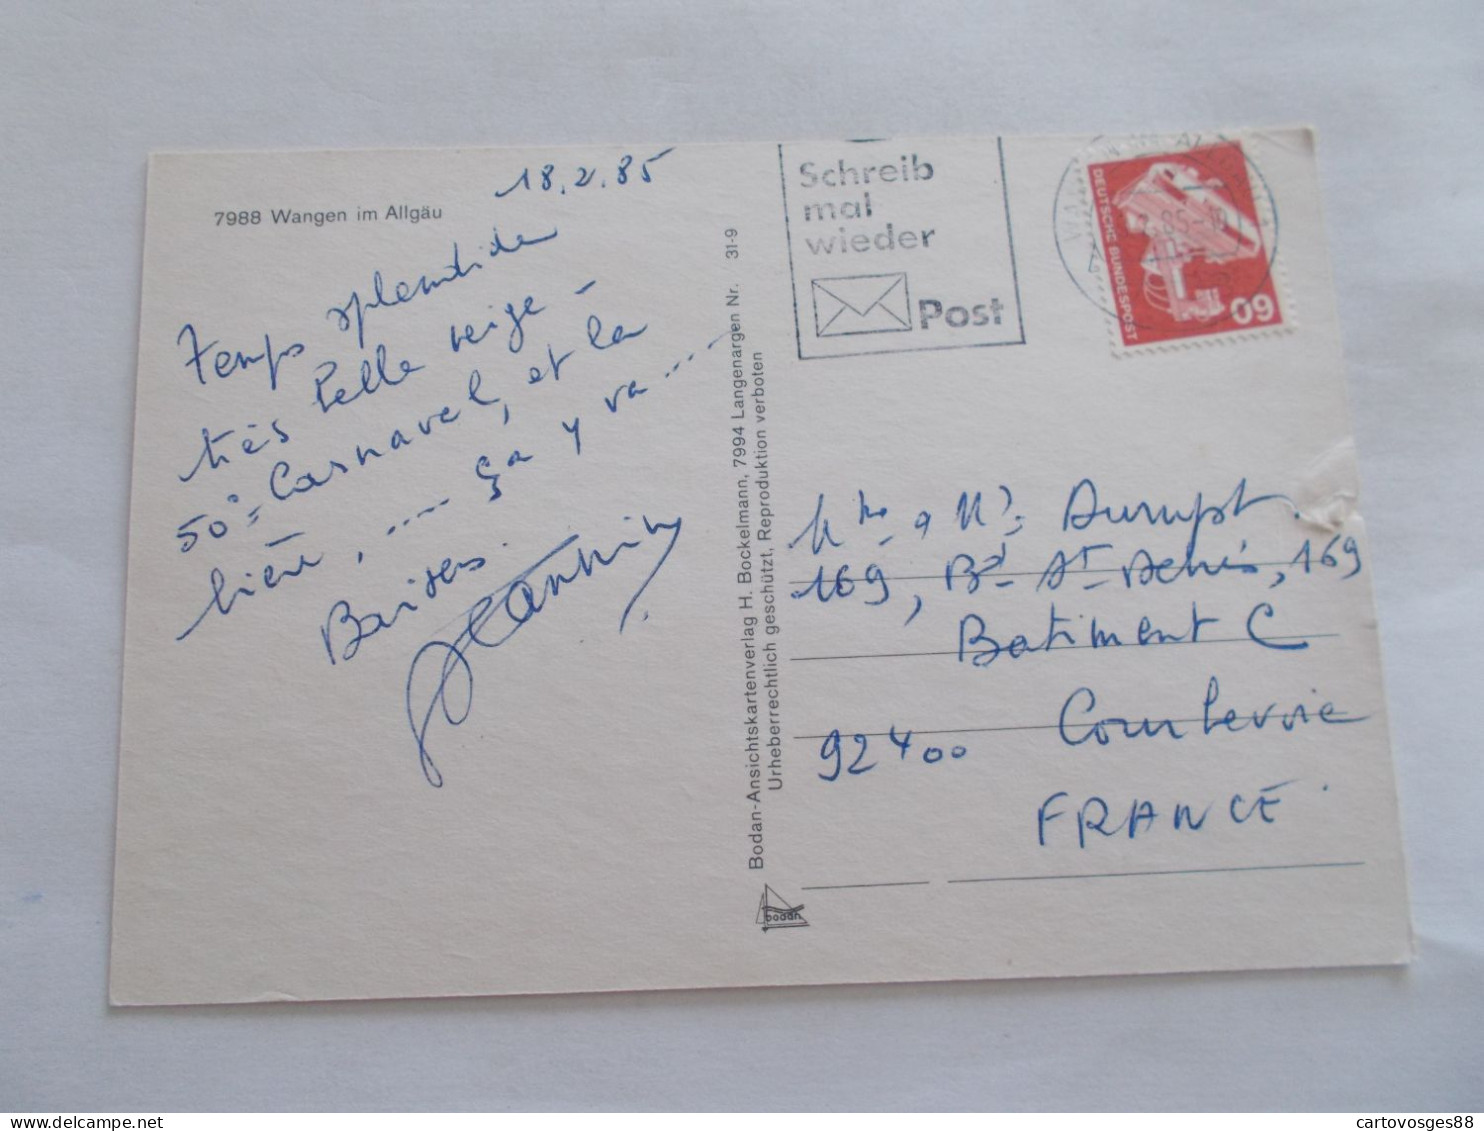 7988 Wangen im Allgäu
18.2.85
Temps splendide
très belle neige -
50° Carnaval, et la
bière, .... ça y va ....
Baisers.
Bodan-Ansichtskartenverlag H. Bockelmann, 7994 Langenargen Nr. 31-9
Urheberrechtlich geschützt, Reproduktion verboten
bodan
Schreib
mal
wieder
Post
DEUTSCHE BUNDESPOST
60
Dumpt.
169, Bd St Denis, 169
Batiment C
92400 Courbevoie
FRANCE.
cartovosges88